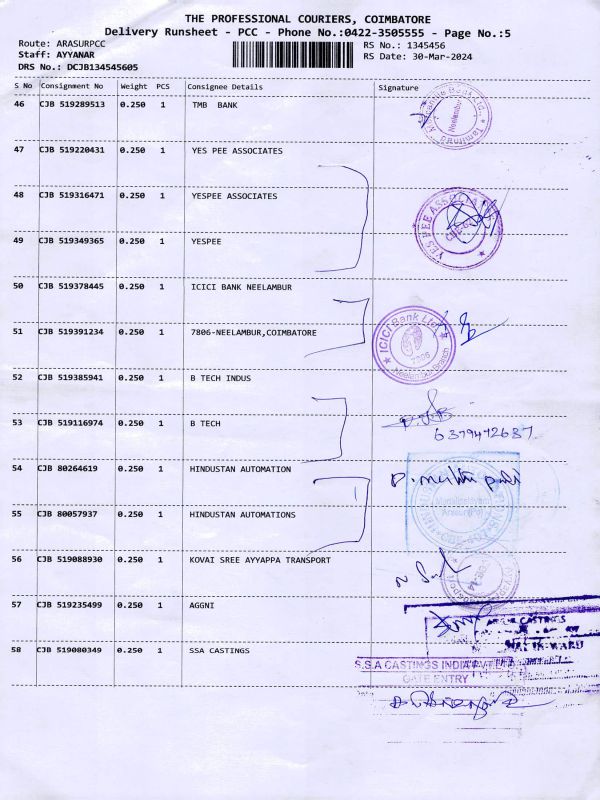 THE PROFESSIONAL COURIERS, COIMBATORE
Delivery Runsheet - PCC - Phone No.:0422-3505555 - Page No.:5
Route: ARASURPCC RS No.: 1345456
Staff: AYYANAR RS Date: 30-Mar-2024
DRS No.: DCJB134545605
S No Consignment No Weight PCS Consignee Details Signature
46 CJB 519289513 0.250 1 TMB BANK
Neelambur
47 CJB 519220431 0.250 1 YES PEE ASSOCIATES
48 CJB 519316471 0.250 1 YESPEE ASSOCIATES
YES PEE ASSOCIATES
49 CJB 519349365 0.250 1 YESPEE
50 CJB 519378445 0.250 1 ICICI BANK NEELAMBUR
ICICI Bank Ltd
51 CJB 519391234 0.250 1 7806-NEELAMBUR,COIMBATORE
7806
Neelambur Branch
52 CJB 519385941 0.250 1 B TECH INDUS
53 CJB 519116974 0.250 1 B TECH
6379472687
54 CJB 80264619 0.250 1 HINDUSTAN AUTOMATION
55 CJB 80057937 0.250 1 HINDUSTAN AUTOMATIONS
56 CJB 519088930 0.250 1 KOVAI SREE AYYAPPA TRANSPORT
57 CJB 519235499 0.250 1 AGGNI
CASTINGS
58 CJB 519080349 0.250 1 SSA CASTINGS
S.S.A CASTINGS INDIA PVT LTD
GATE ENTRY